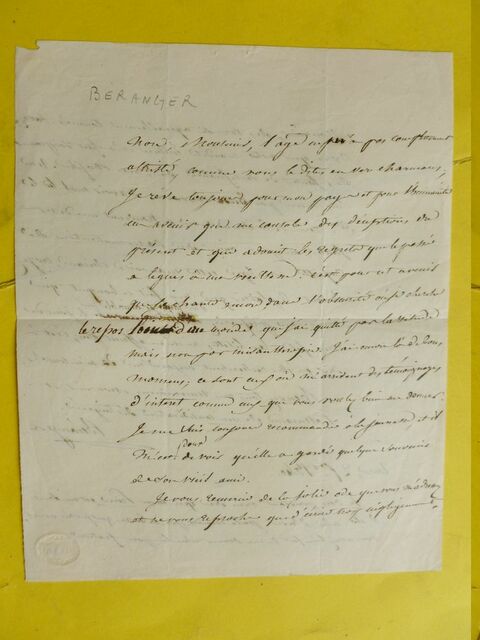 BÉRANGER
Non, Monsieur, l'âge ne m'a pas complètement
attristé, comme vous le dites en vers charmans,
Je rêve toujours pour mon pays et pour l'humanité
un avenir qui me console des déceptions du
présent et qui adoucit les regrets que le passé
a légués à ma vieillesse. C'est pour cet avenir
que je chante encore dans l'obscurité où je cherche
le repos loin d'un monde que j'ai quitté par lassitude
mais non par misanthropie. J'ai encore là de bons
momens; ce sont ceux où m'arrivent des témoignages
d'intérêt comme ceux que vous voulez bien me donner.
Je me suis toujours recommandé à la jeunesse et il
m'est doux de voir qu'elle a gardé quelque souvenir
de son vieil ami.
Je vous remercie de la jolie ode que vous m'adressez
et ne vous reproche que d'écrire trop négligemment